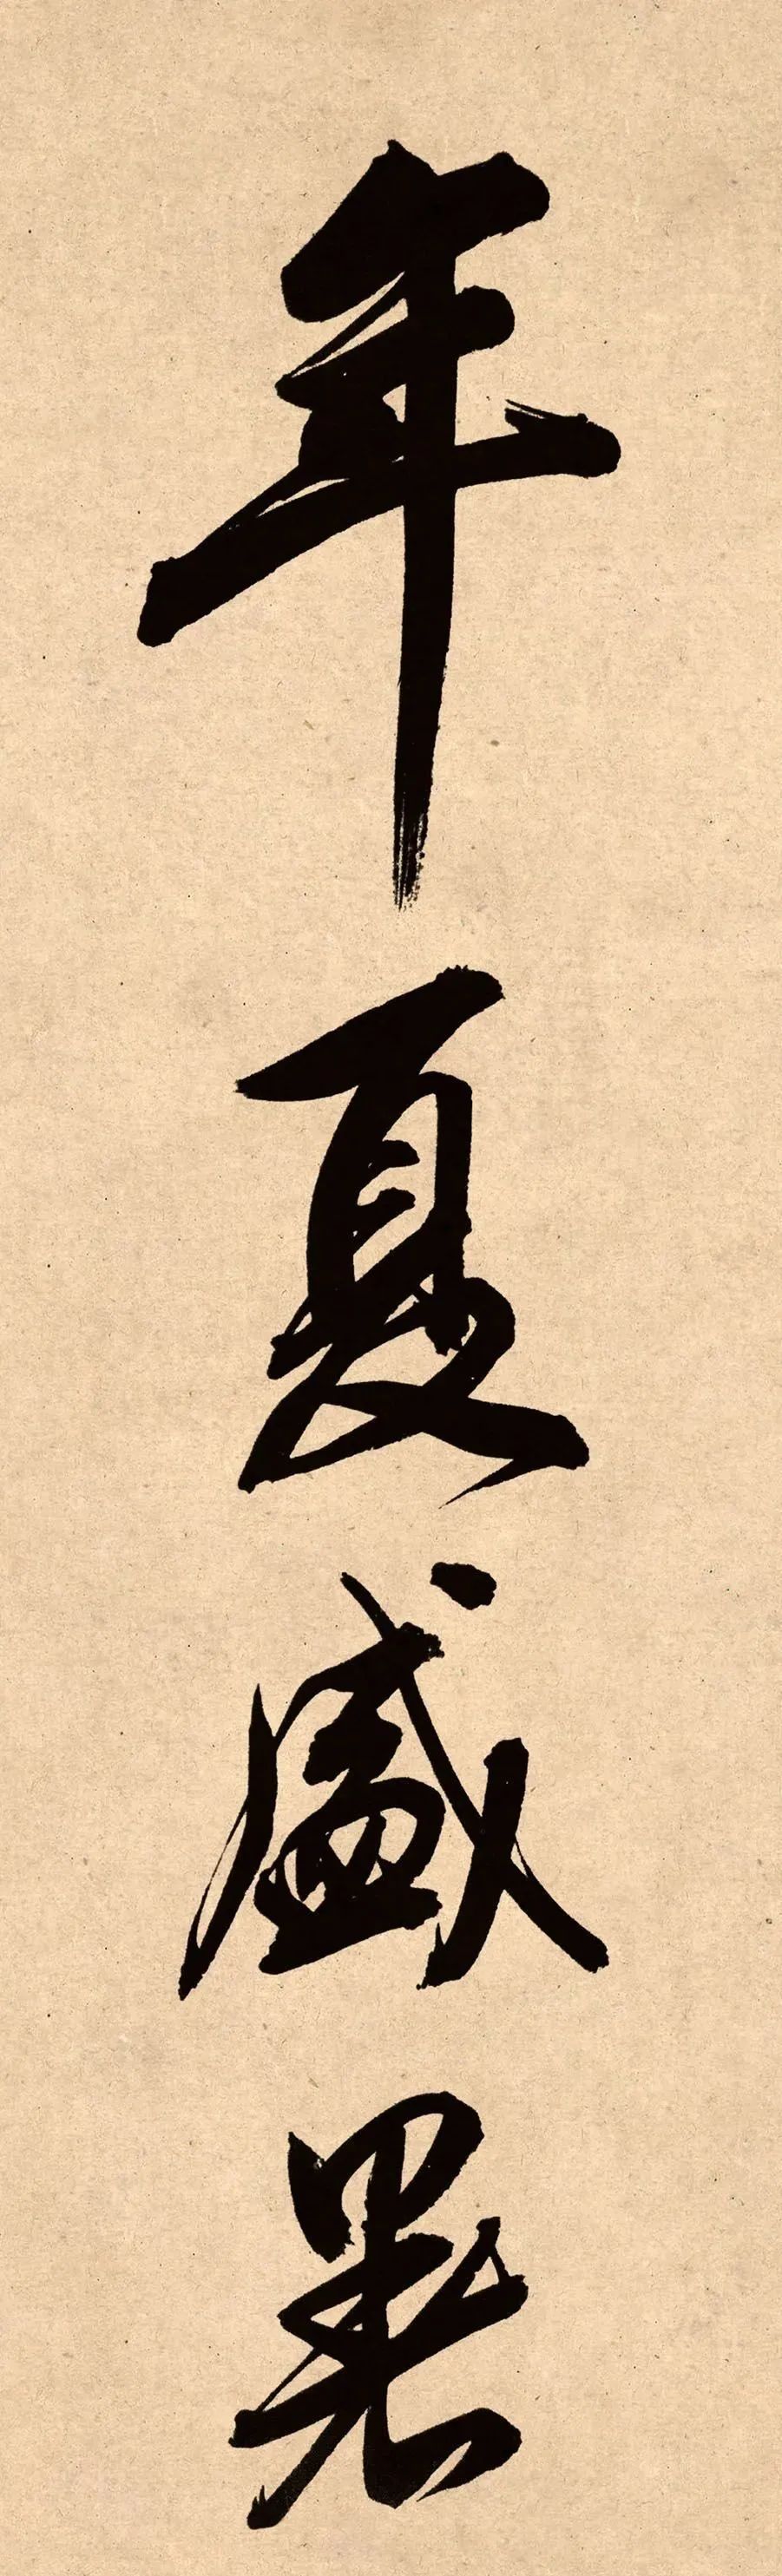 年夏盛暑